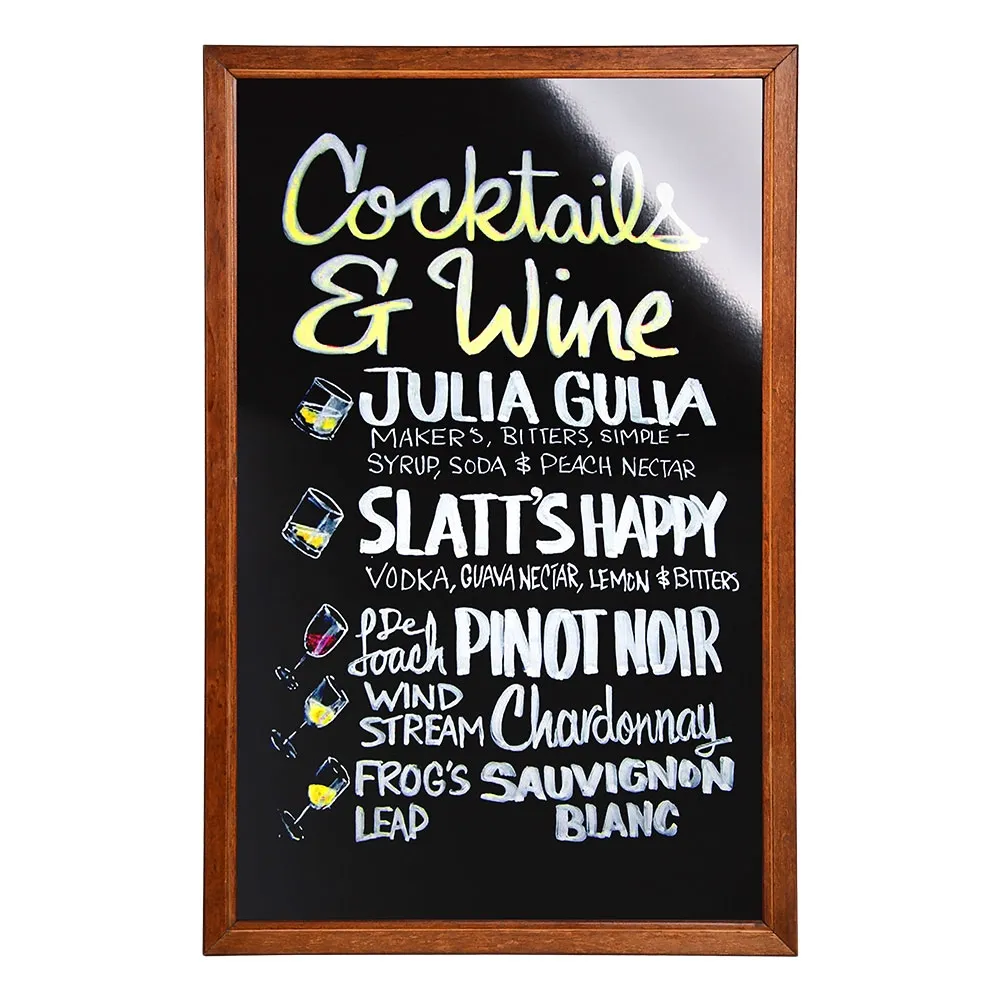 Cocktails
& Wine
JULIA GULIA
MAKER'S, BITTERS, SIMPLE -
SYRUP, SODA & PEACH NECTAR
SLATT'S HAPPY
VODKA, GUAVA NECTAR, LEMON & BITTERS
De Loach PINOT NOIR
WIND STREAM Chardonnay
FROG'S LEAP SAUVIGNON BLANC